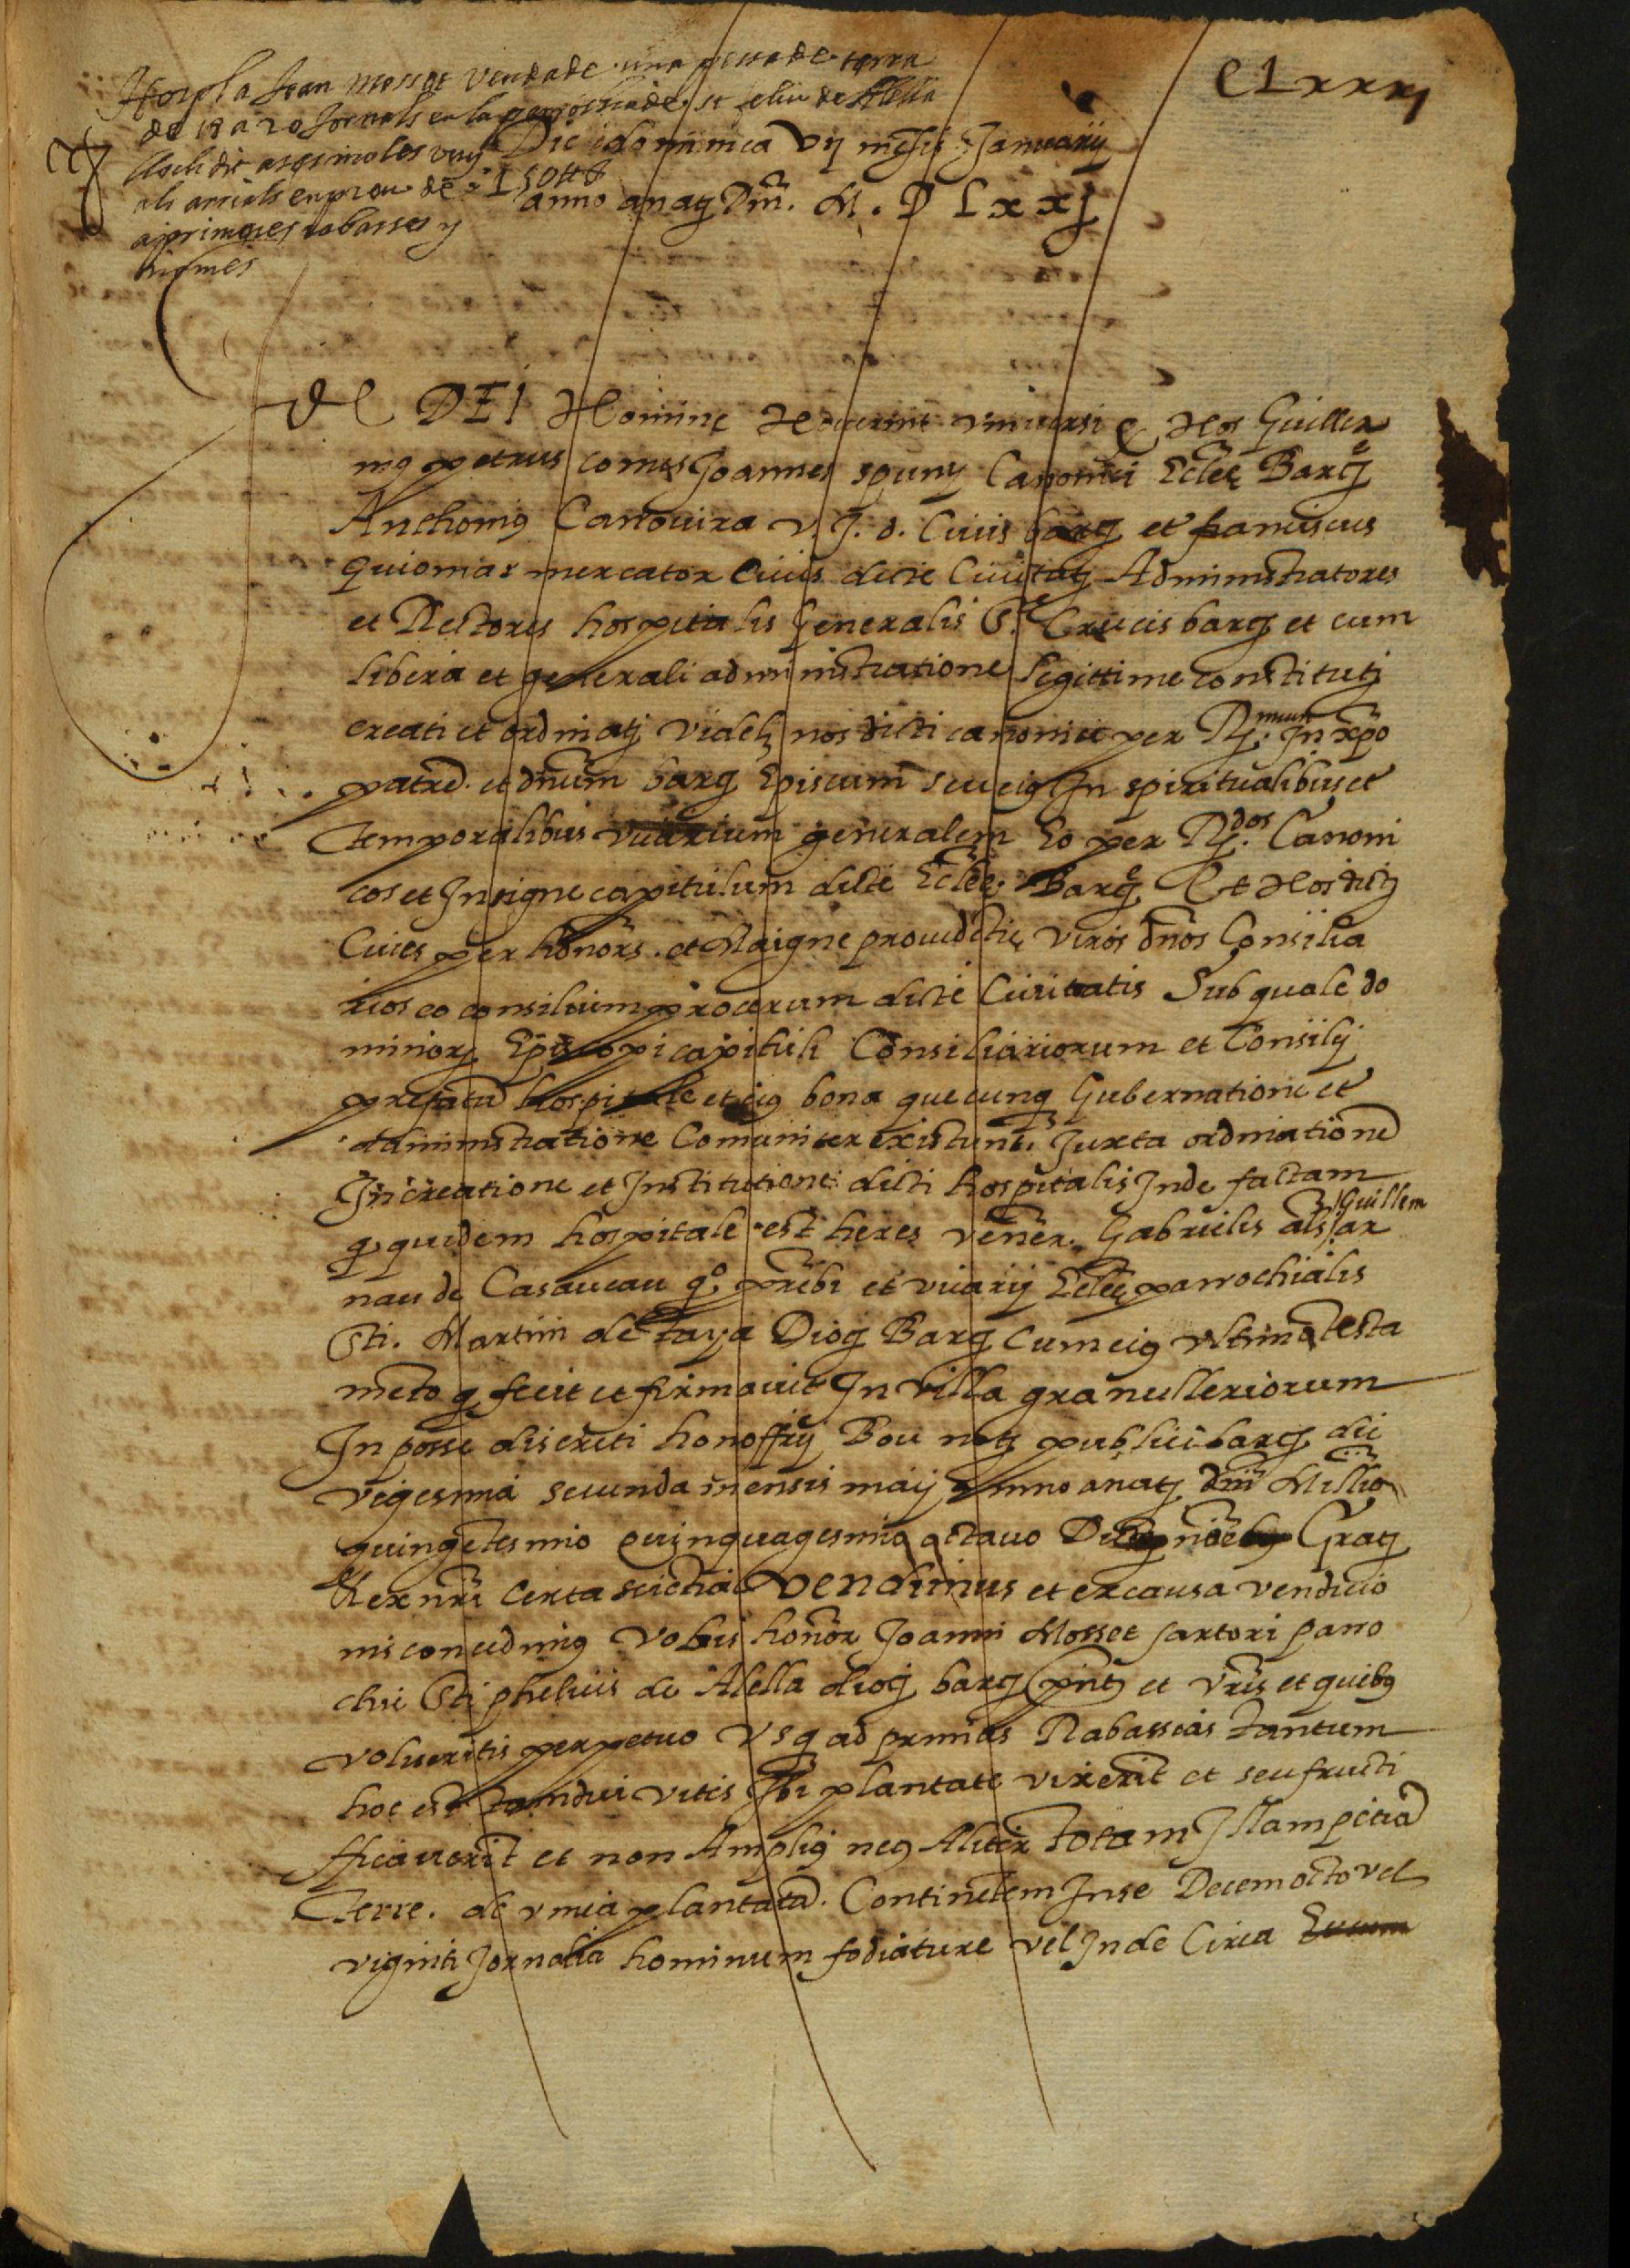 CLxxxj
Joan Mosset venda de una pessa de terra
de 18 a 20 Jornals en la parrochia de st feliu de Alella
als arrials en preu de 150 ₶
a primeres rabasses y
Die dominica vij mesis Januarij
anno a natj Dñi. M. D Lxxj
DEI Nomine Noverint universi Nos Guiller
mꝰ petrus comes Joannes spuny Canonici Eclẽ Barcj
Anthoniꝰ Canovira v. J. d. Civis barcj et franciscus
Guiomar mercator Civis dicte Civitatj Administratores
et Rectores hospitalis generalis Ste Crucis barcj et cum
libera et generali administratione legittime constitutj
creati et ordinatj videlz nos dicti canonici per Rj.mum Jn xp̃o
patrẽ. et dñum barcj Episcum seu eiꝰ Jn spiritualibus et
temporalibus vicarium generalem Eo per Rj.dos Canoni
cos et Jnsigne capitulum dicte Eclẽe. Barcj Et Nos dictj
Cives per honors. et Magne providẽtie viros dños Consilia
rios eo consilium procerum dicte Civitatis Sub quale do
minorj Episcopi capituli Consiliariorum et Consilij
prefatũ hospitale et eiꝰ bona quecunqꝫ Gubernatione et
administratione Comuniter existunt. Juxta ordinationẽ
Jn creatione et Jnstitutione dicti hospitalis Jnde factam
qꝫ quidem hospitale est heres venẽr. Gabrielis als Guillem ar
nau de Casaveau qº. p̃rebi et vicarij Eclẽe parrochialis
Sti. Martini de taya Diocj Barcj cum eiꝰ ultimo testa
mẽto qꝫ fecit et firmavit Jn villa granulleriorum
Jn posse discreti honoffrij Bou notj publici barcj die
vigesima secunda mensis maij anno a natj dñi Millio
quingẽtesimo quinquagesimo octavo Gratj
Et ex nr̃i certa sciẽtia Vendimus et ex causa vendicio
nis concedimꝰ vobis honor Joanni Mosset sartori parro
chie Sti pheliuis de Alella diocj barcj p̃ntj et vr̃is et quibꝰ
volueritis perpetuo Usqꝫ ad primas Rabassias tantum
hoc est tamdiu vites Jbi plantate vixerit et seu fructi
fficaverit et non Ampliꝰ neqꝫ Aliter totam Jllam petiã
terre. de vinea plantatã. Continẽtem Jn se Decem octo vel
viginti Jornalia hominum fodiature vel Jnde Circa